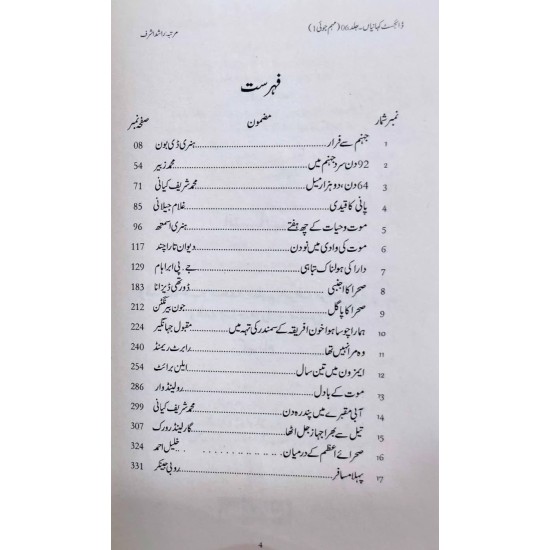 ڈائجسٹ کہانیاں۔ جلد 06 (مہم جوئی 1) مرتبہ راشد اشرف
فہرست
نمبر شمار مضمون صفحہ نمبر
1 جہنم سے فرار ہنری ڈی بون 08
2 92 دن سرد جہنم میں محمد زبیر 54
3 64 دن، دو ہزار میل محمد شریف کیانی 71
4 پانی کا قیدی غلام جیلانی 85
5 موت و حیات کے چھ ہفتے ہنری اسمتھ 96
6 موت کی وادی میں نو دن دیوان تارا چند 117
7 دارا کی ہولناک تباہی جے۔ پی ابراہام 129
8 صحرا کا اجنبی ڈورتھی ڈیزانا 183
9 صحرا کا پاگل جون ہیر نگٹن 212
10 ہمارا چوسا ہوا خون افریقہ کے سمندر کی تہہ میں مقبول جہانگیر 224
11 وہ مرا نہیں تھا رابرٹ ریمنڈ 240
12 ایمزون میں تین سال ایلن برائٹ 254
13 موت کے بادل رولینڈ وار 286
14 آبی مقبرے میں پندرہ دن محمد شریف کیانی 299
15 تیل سے بھرا جہاز جل اٹھا گارلینڈ رورک 307
16 صحرائے اعظم کے درمیان خلیل احمد 324
17 پہلا مسافر روبی جینکر 331
4